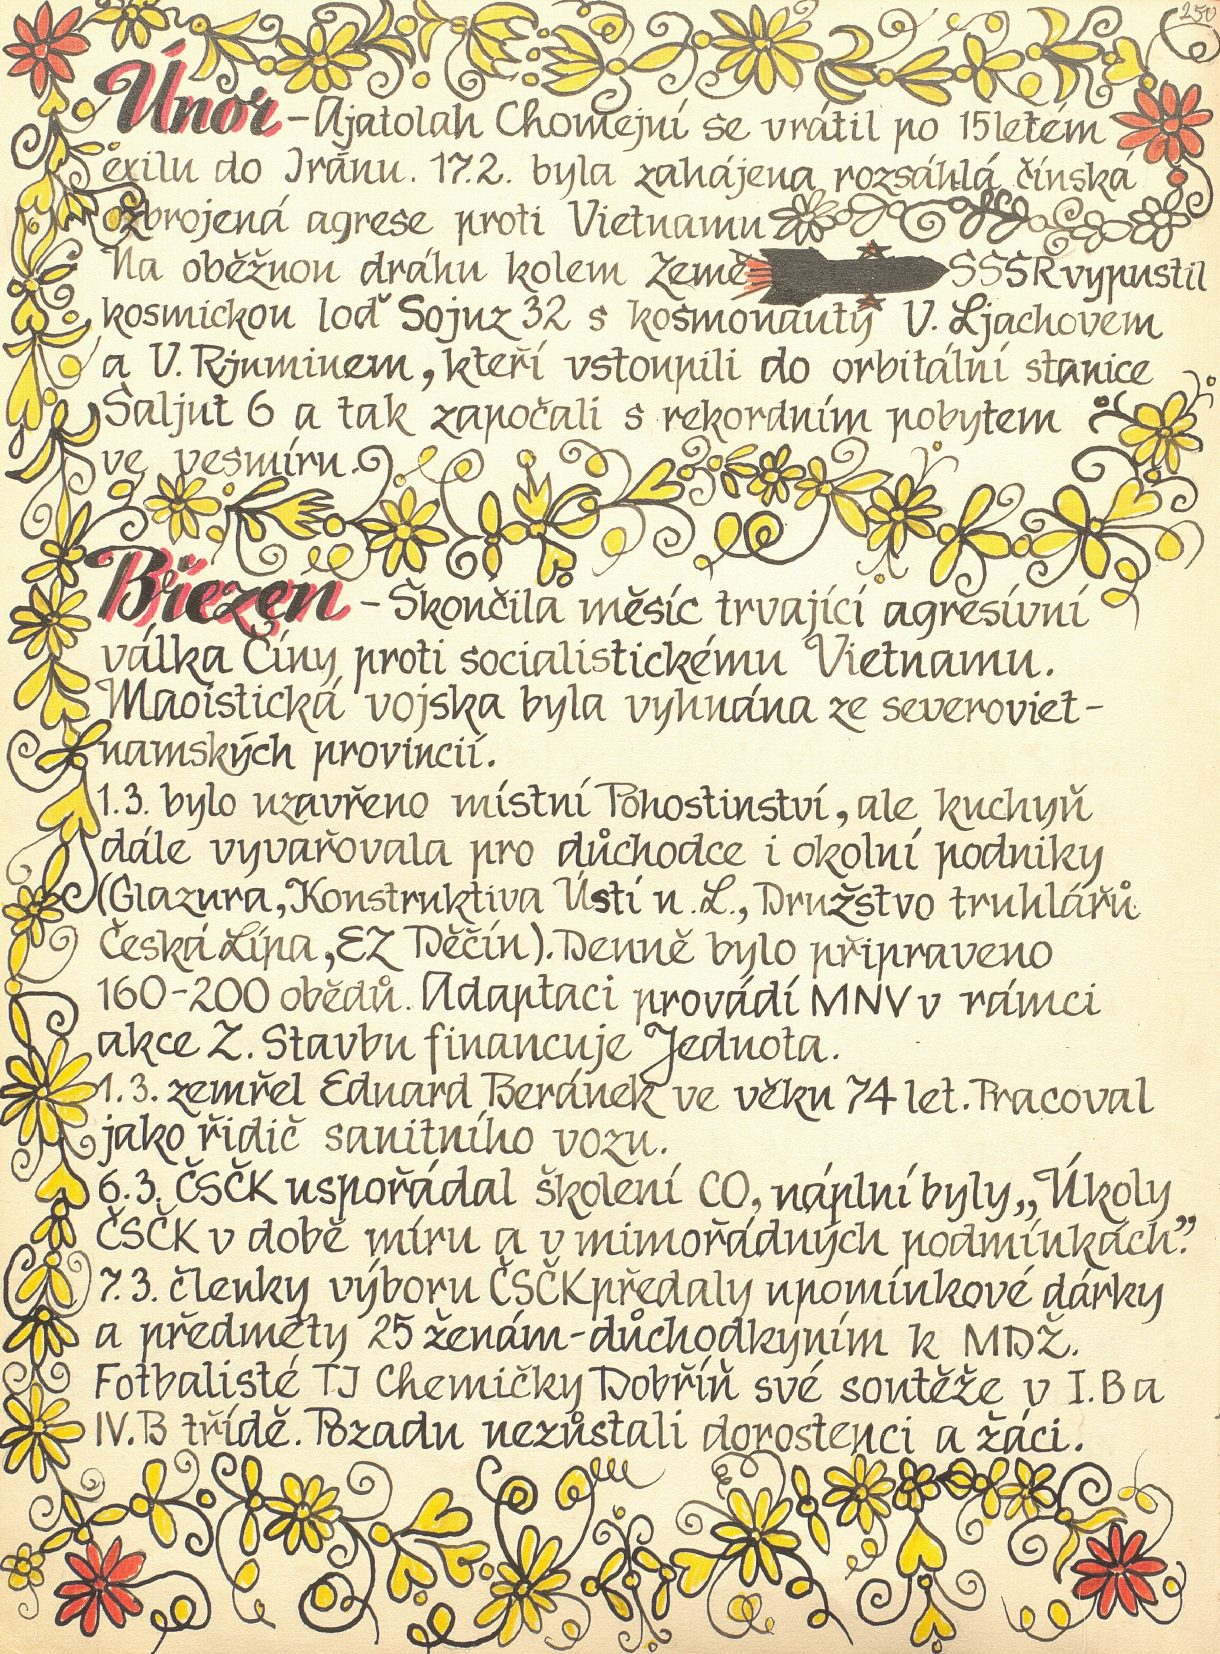 250
Únor – Ajatolah Chomejní se vrátil po 15letém
exilu do Iránu. 17.2. byla zahájena rozsáhlá čínská
ozbrojená agrese proti Vietnamu
Na oběžnou dráhu kolem Země SSSR vypustil
kosmickou loď Sojuz 32 s kosmonauty V. Ljachovem
a V. Rjuminem, kteří vstoupili do orbitální stanice
Saljut 6 a tak započali s rekordním pobytem
ve vesmíru.
Březen – Skončila měsíc trvající agresivní
válka Číny proti socialistickému Vietnamu.
Maoistická vojska byla vyhnána ze severoviet-
namských provincií.
1.3. bylo uzavřeno místní Pohostinství, ale kuchyň
dále vyvařovala pro důchodce i okolní podniky
(Glazura, Konstruktiva Ústí n. L., Družstvo truhlářů
Česká Lípa, EZ Děčín). Denně bylo připraveno
160-200 obědů. Adaptaci provádí MNV v rámci
akce Z. Stavbu financuje Jednota.
1.3. zemřel Eduard Beránek ve věku 74 let. Pracoval
jako řidič sanitního vozu.
6.3. ČSČK uspořádal školení CO, náplní byly „Úkoly
ČSČK v době míru a v mimořádných podmínkách."
7.3. členky výboru ČSČK předaly upomínkové dárky
a předměty 25 ženám-důchodkyním k MDŽ.
Fotbalisté TJ Chemičky Dobříň své soutěže v I.B a
IV.B třídě. Pozadu nezůstali dorostenci a žáci.